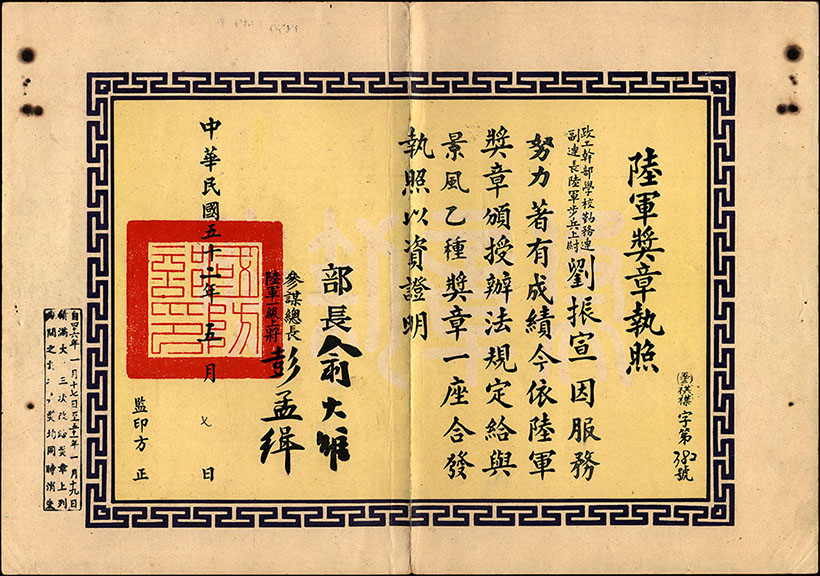 陸軍獎章執照
字第782號
政工幹部學校勤務連
副連長陸軍步兵上尉
劉振宣因服務
努力著有成績今依陸軍
獎章頒授辦法規定給與
景風乙種獎章一座合發
執照以資證明
部長俞大維
參謀總長
陸軍一級上將
彭孟緝
中華民國五十二年五月七日
國防部印
監印方正
自四六年一月十七日至五十一年一月十九日